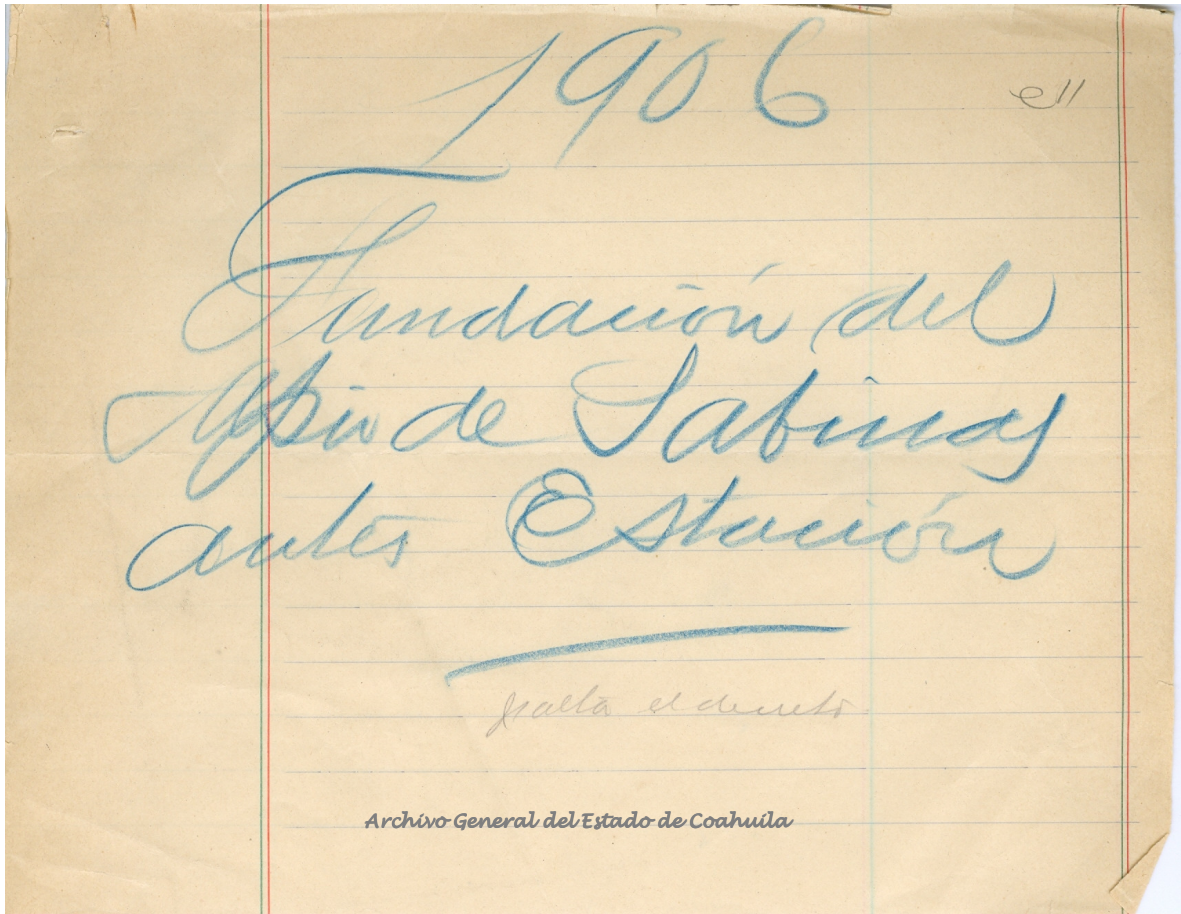 1906
Fundación del
Mpio de Sabinas
antes Estación
falta el decreto
Archivo General del Estado de Coahuila